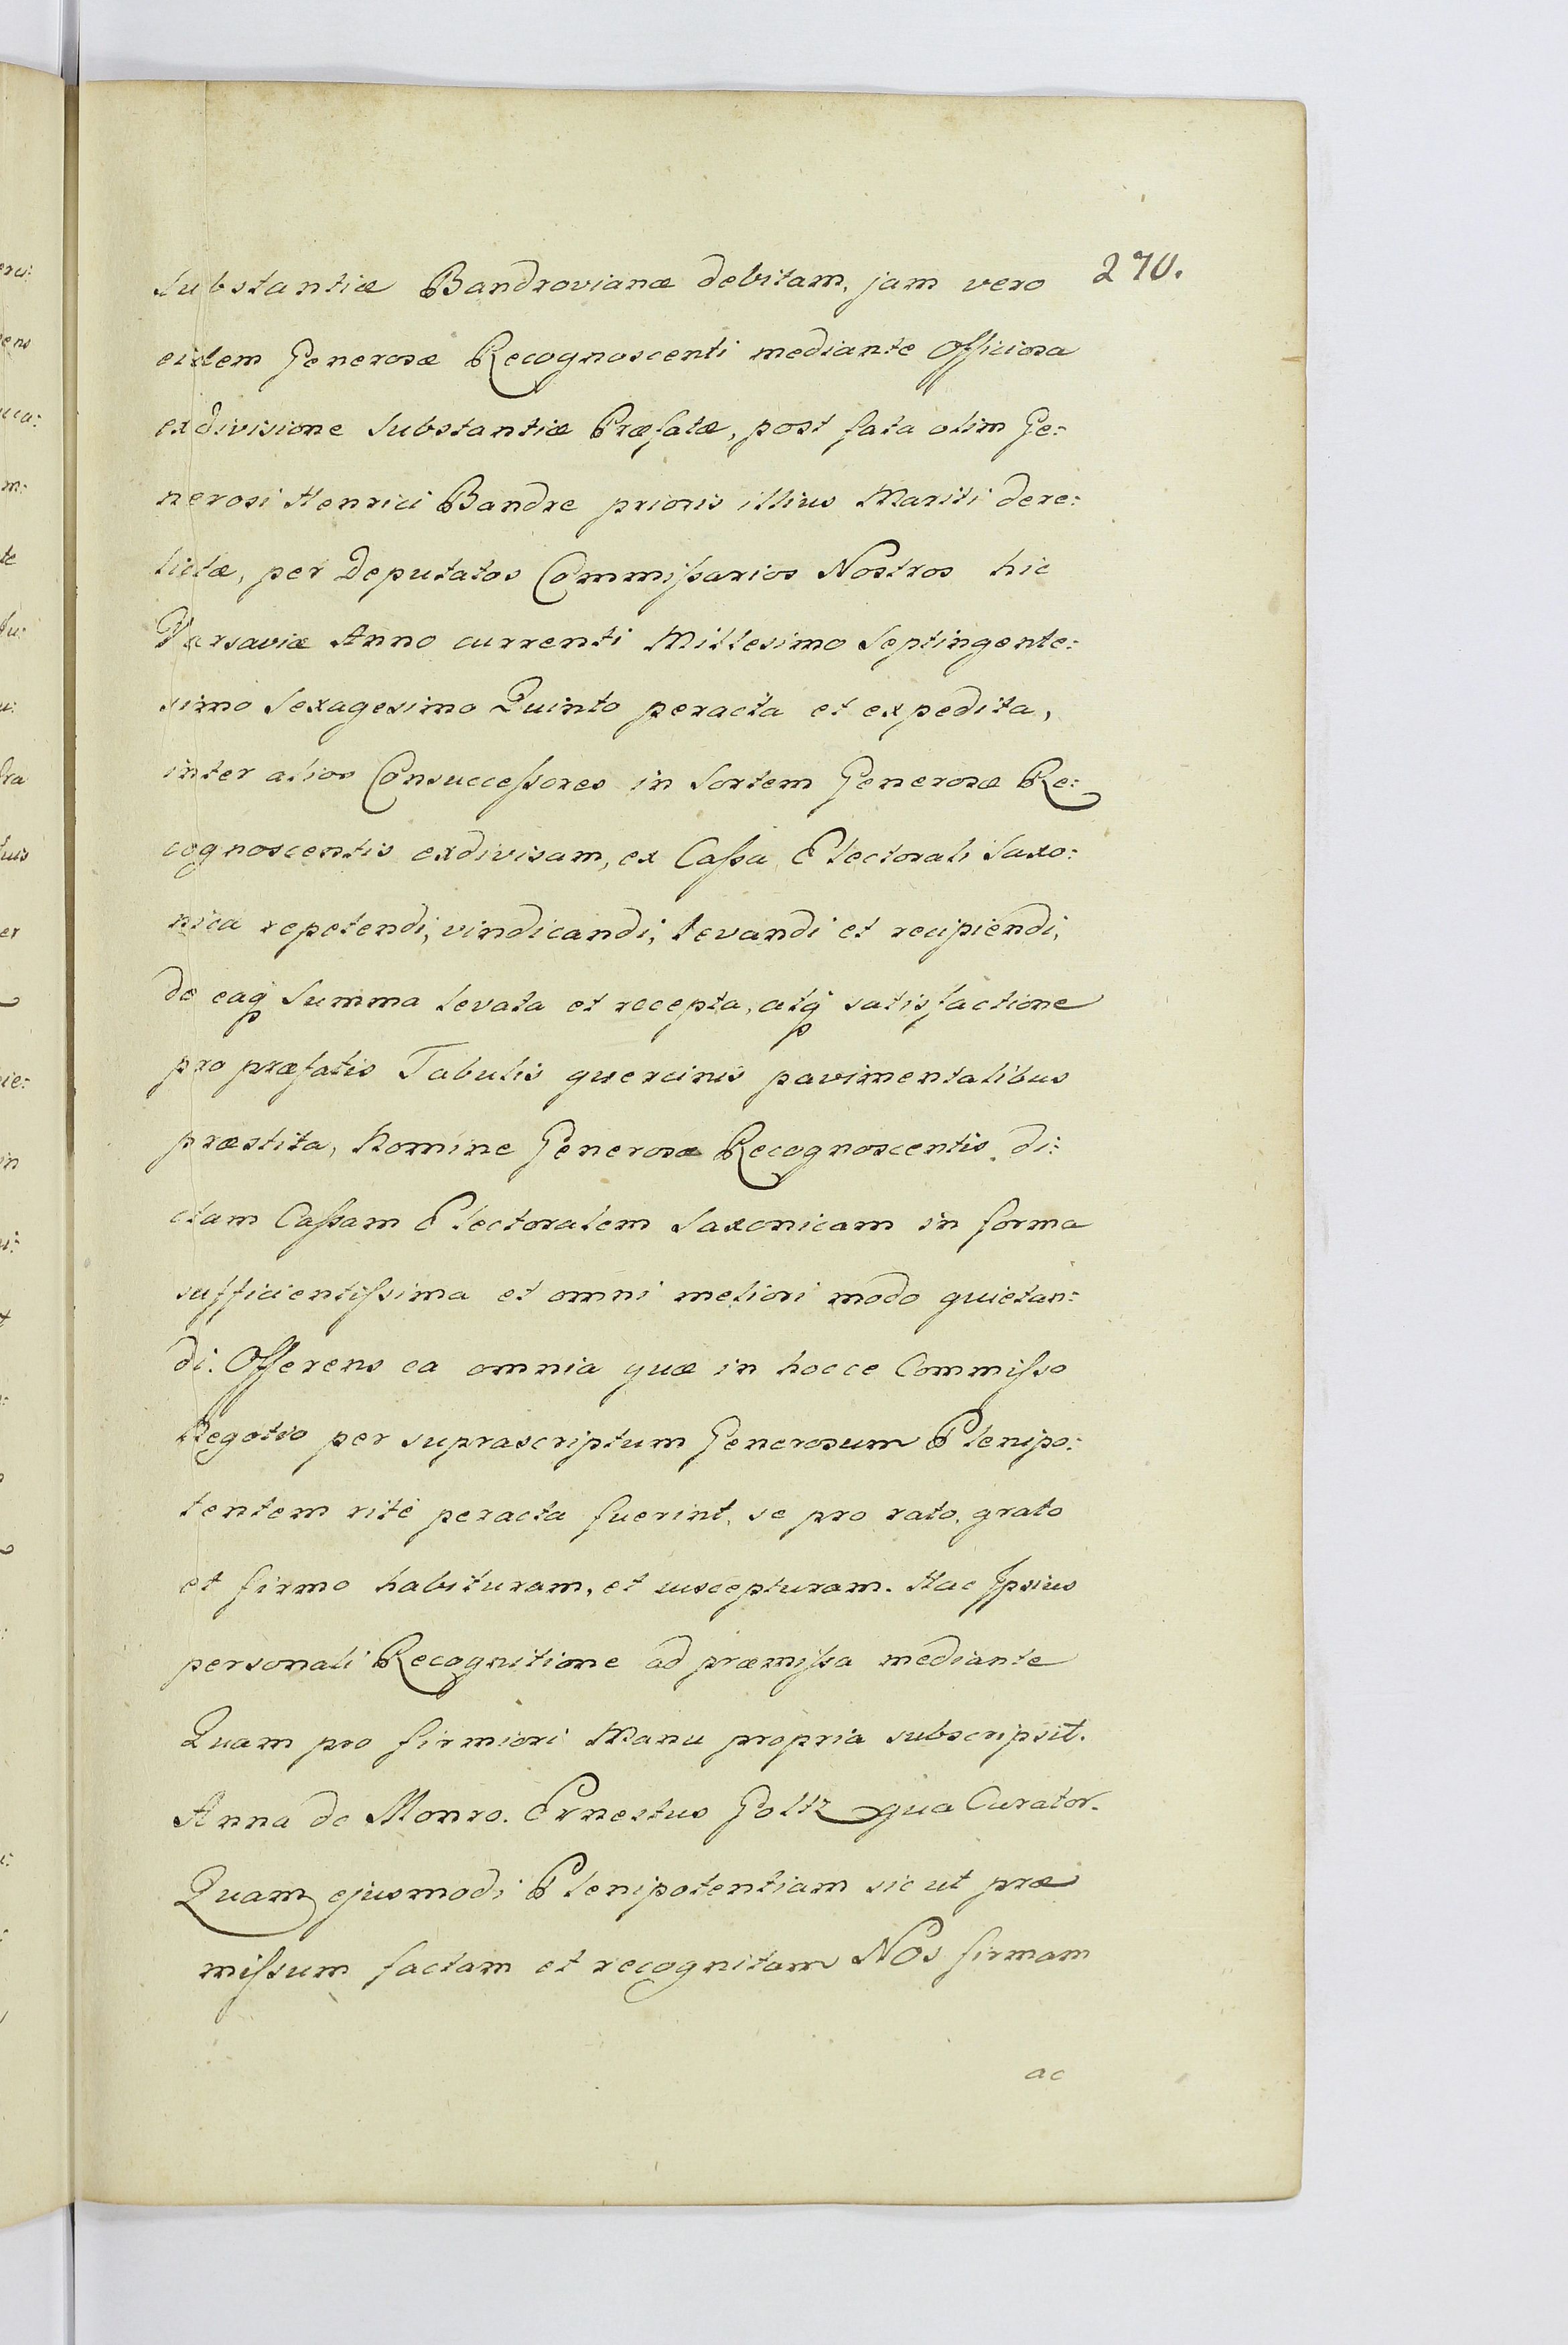 270.
Substantiæ Bandrovianæ debitam, jam vero
eidem Generosæ Recognoscenti mediante Officiosa
exdivisione Substantiæ Præfatæ, post fata olim Ge:
nerosi Henrici Bandre prioris illius Mariti dere:
lictæ, per Deputatos Commißarios Nostros hic
Varsaviæ Anno currenti Millesimo Septingente:
simo Sexagesimo Quinto peracta et expedita,
inter alios Consucceßores in Sortem Generosæ Re:
cognoscentis exdivisam, ex Caßa Electorali Saxo:
nica repetendi, vindicandi, levandi et recipiendi,
de eaq Summa levata et recepta, atq satisfactione
pro præfatis Tabulis quercinis pavimentalibus
præstita, Nomine Generosæ Recognoscentis di:
ctam Caßam Electoralem Saxonicam in forma
sufficientißima et omni meliori modo quietan:
di. Offerens ea omnia quæ in hocce Commißo
Negotio per suprascriptum Generosum Plenipo:
tentem ritè peracta fuerint, se pro rato, grato
et firmo habituram, et suscepturam. Hac Ipsius
personali Recognitione ad præmißa mediante
Quam pro firmiori Manu propria subscripsit.
Anna de Monro. Ernestus Goltz qua Curator.
Quam ejusmodi Plenipotentiam sic ut præ
mißum factam et recognitam Nos firmam
ac